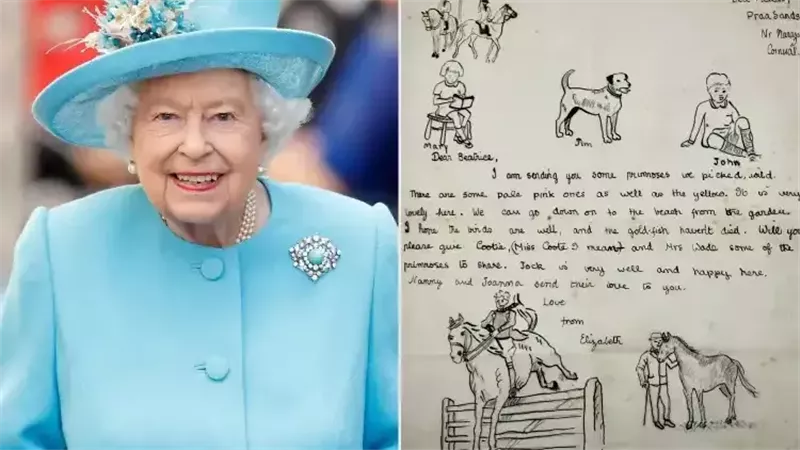 Praa Sands
Nr
Cornwall.
Mary
Jim
John
Dear Beatrice,
I am sending you some primroses we picked, wild.
There are some pale pink ones as well as the yellow. It is very
lovely here. We can go down on to the beach from the garden.
I hope the birds are well, and the gold-fish haven't died. Will you
please give Cootie, (Miss Coote I mean) and Mrs Wade some of the
primroses to share. Jock is very well and happy here.
Nanny and Joanna send their love to you.
Love
from
Elizabeth